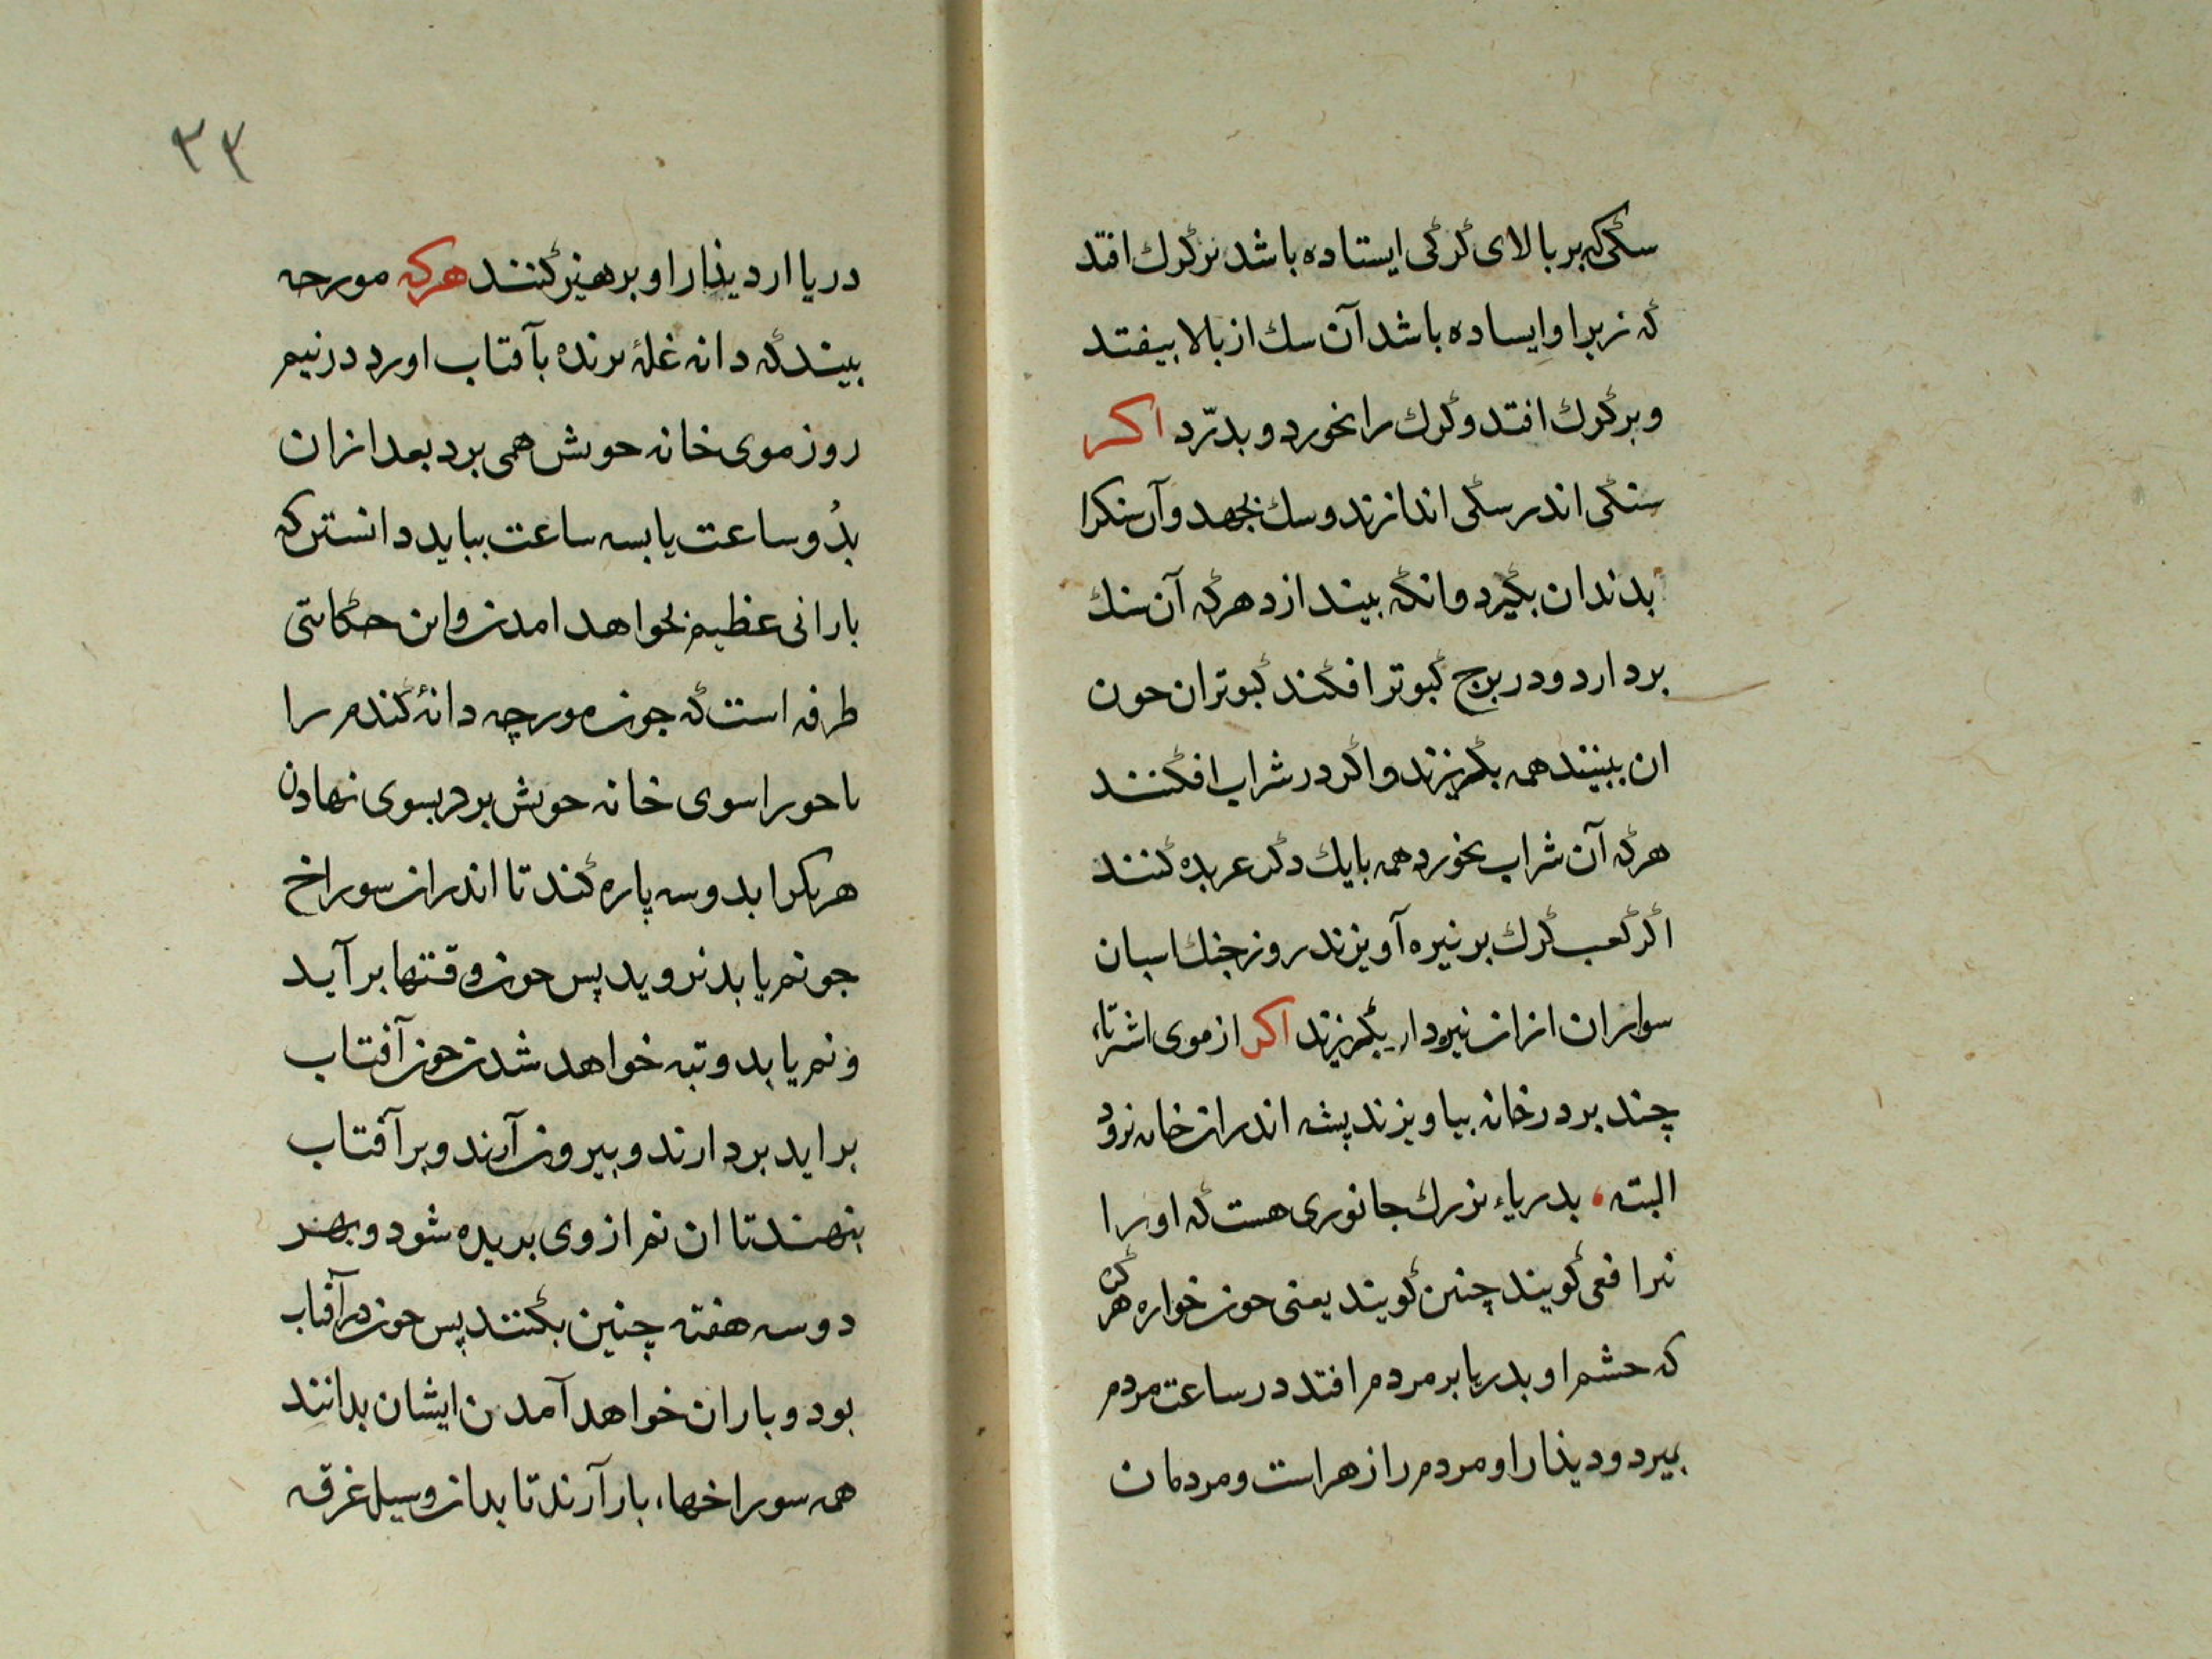 سکی که بر بالای کرکی ایستاده باشد نر کرک افتد
که زیر او ایساده باشد آن سک از بالا بیفتد
و بر کرک افتد و کرک را نخورد و بدرّد اکر
سنکی اندر سکی اندازند و سک بجهد و آن سنک را
بدندان بکیرد وانکه بیندازد هر که آن سنک
بردارد و در برج کبوتر افکند کبوتران حون
ان ببینند همه بکریزند و اکر در شراب افکنند
هر که آن شراب بخورد همه بایک دکر عربده کنند
اکر کعب کرک بر نیزه آویزند روز جنک اسبان
سواران ازان نیزه دار بکریزند اکر از موی اشتر تاء
چند بر در خانه بیاویزند پشه اندران خانه نرود
البته ، بدریاء بزرک جانوری هست که او را
افعی کویند چنین کویند یعنی حون خواره هر کن
که حشم او بدریا بر مردم افتد در ساعت مردم
بمیرد و دیذار او مردم را زهر است و مردمان
۳۳
دریا ار دیذار او برهیز کنند هر که مورجه
بیند که دانه غلهٔ برنده بآفتاب اورد در نیم
روز موی خانه حویش همی برد بعد ازان
بدُو ساعت یا بسه ساعت بباید دانستن که
بارانی عظیم بخواهد امدن واین حکایتی
طرفه است که جون مورچه دانهٔ کندم را
یا جو را سوی خانه حویش برد بسوی نهادن
هر یکرا بدو سه پاره کند تا اندران سوراخ
جو نم یابد نروید پس حون وقتها برآید
و نم یابد و تبه خواهد شدن حون آفتاب
براید بردارند و بیرون آرند و بر آفتاب
بنهند تا ان نم از وی بریده شود و بهر
دوسه هفته چنین بکنند پس حون در آفتاب
بود و باران خواهد آمدن ایشان بدانند
همه سوراخها، بار آرند تا بدان و سیل غرقه